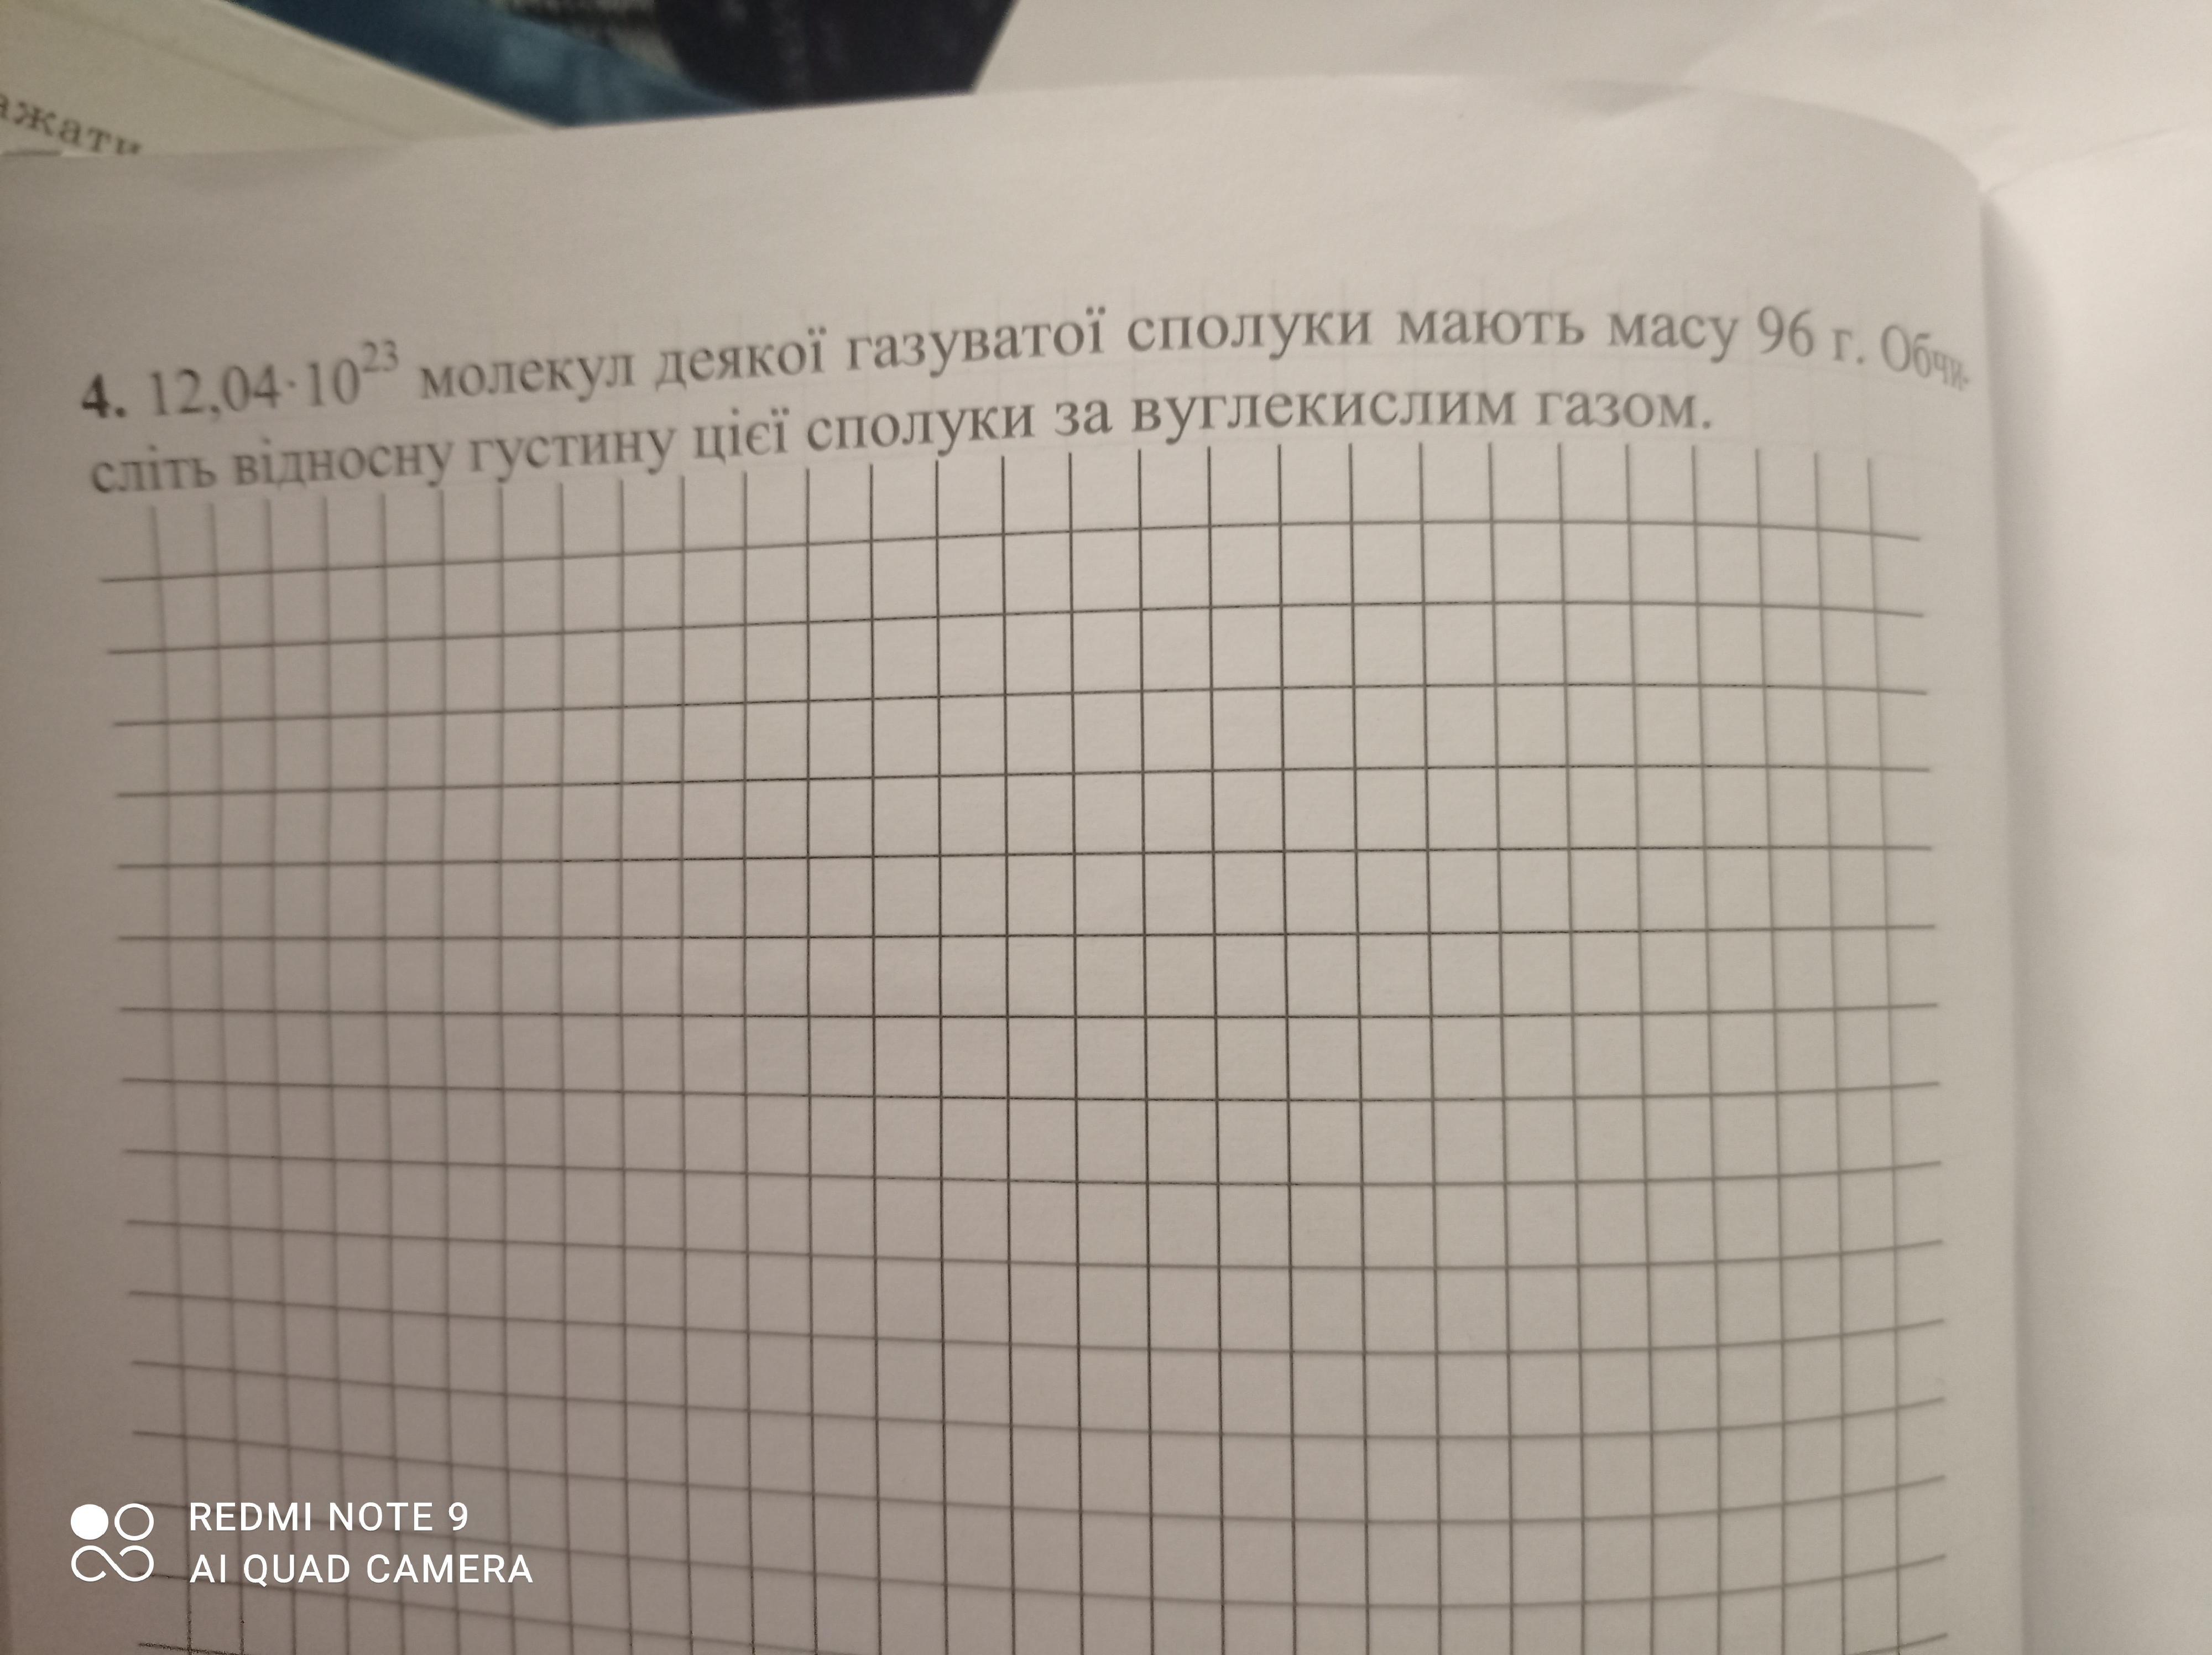 ажати
4. 12,04·10²³ молекул деякої газуватої сполуки мають масу 96 г. Обчи-
сліть відносну густину цієї сполуки за вуглекислим газом.
REDMI NOTE 9
AI QUAD CAMERA